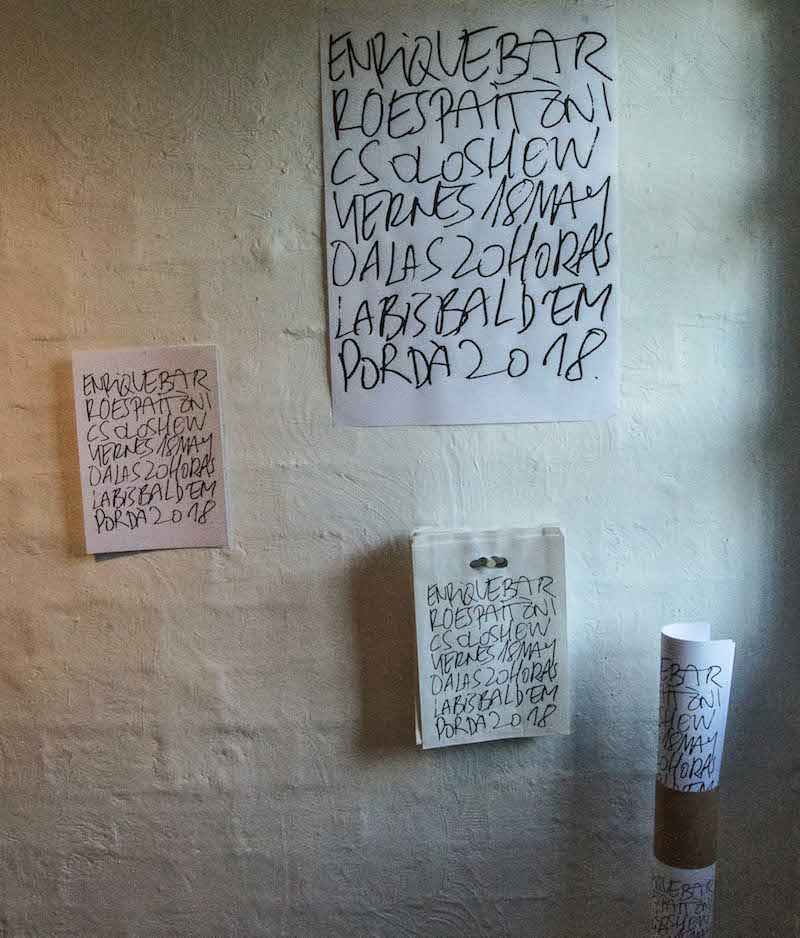 ENRIQUEBAR
ROESPAITÒNI
CSOLOSHOW
VIERNES18MAY
OALAS20HORAS
LABISBALD'EM
PORDÀ2018.
ENRIQUEBAR
ROESPAITÒNI
CSOLOSHOW
VIERNES18MAY
OALAS20HORAS
LABISBALD'EM
PORDÀ2018
ENRIQUEBAR
ROESPAITÒNI
CSOLOSHOW
VIERNES18MAY
OALAS20HORAS
LABISBALD'EM
PORDÀ2018
EBAR
ITÒNI
SHOW
18MAY
0HORAS
QUEBAR